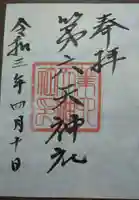 奉拝
第六天神社
令和三年四月十日